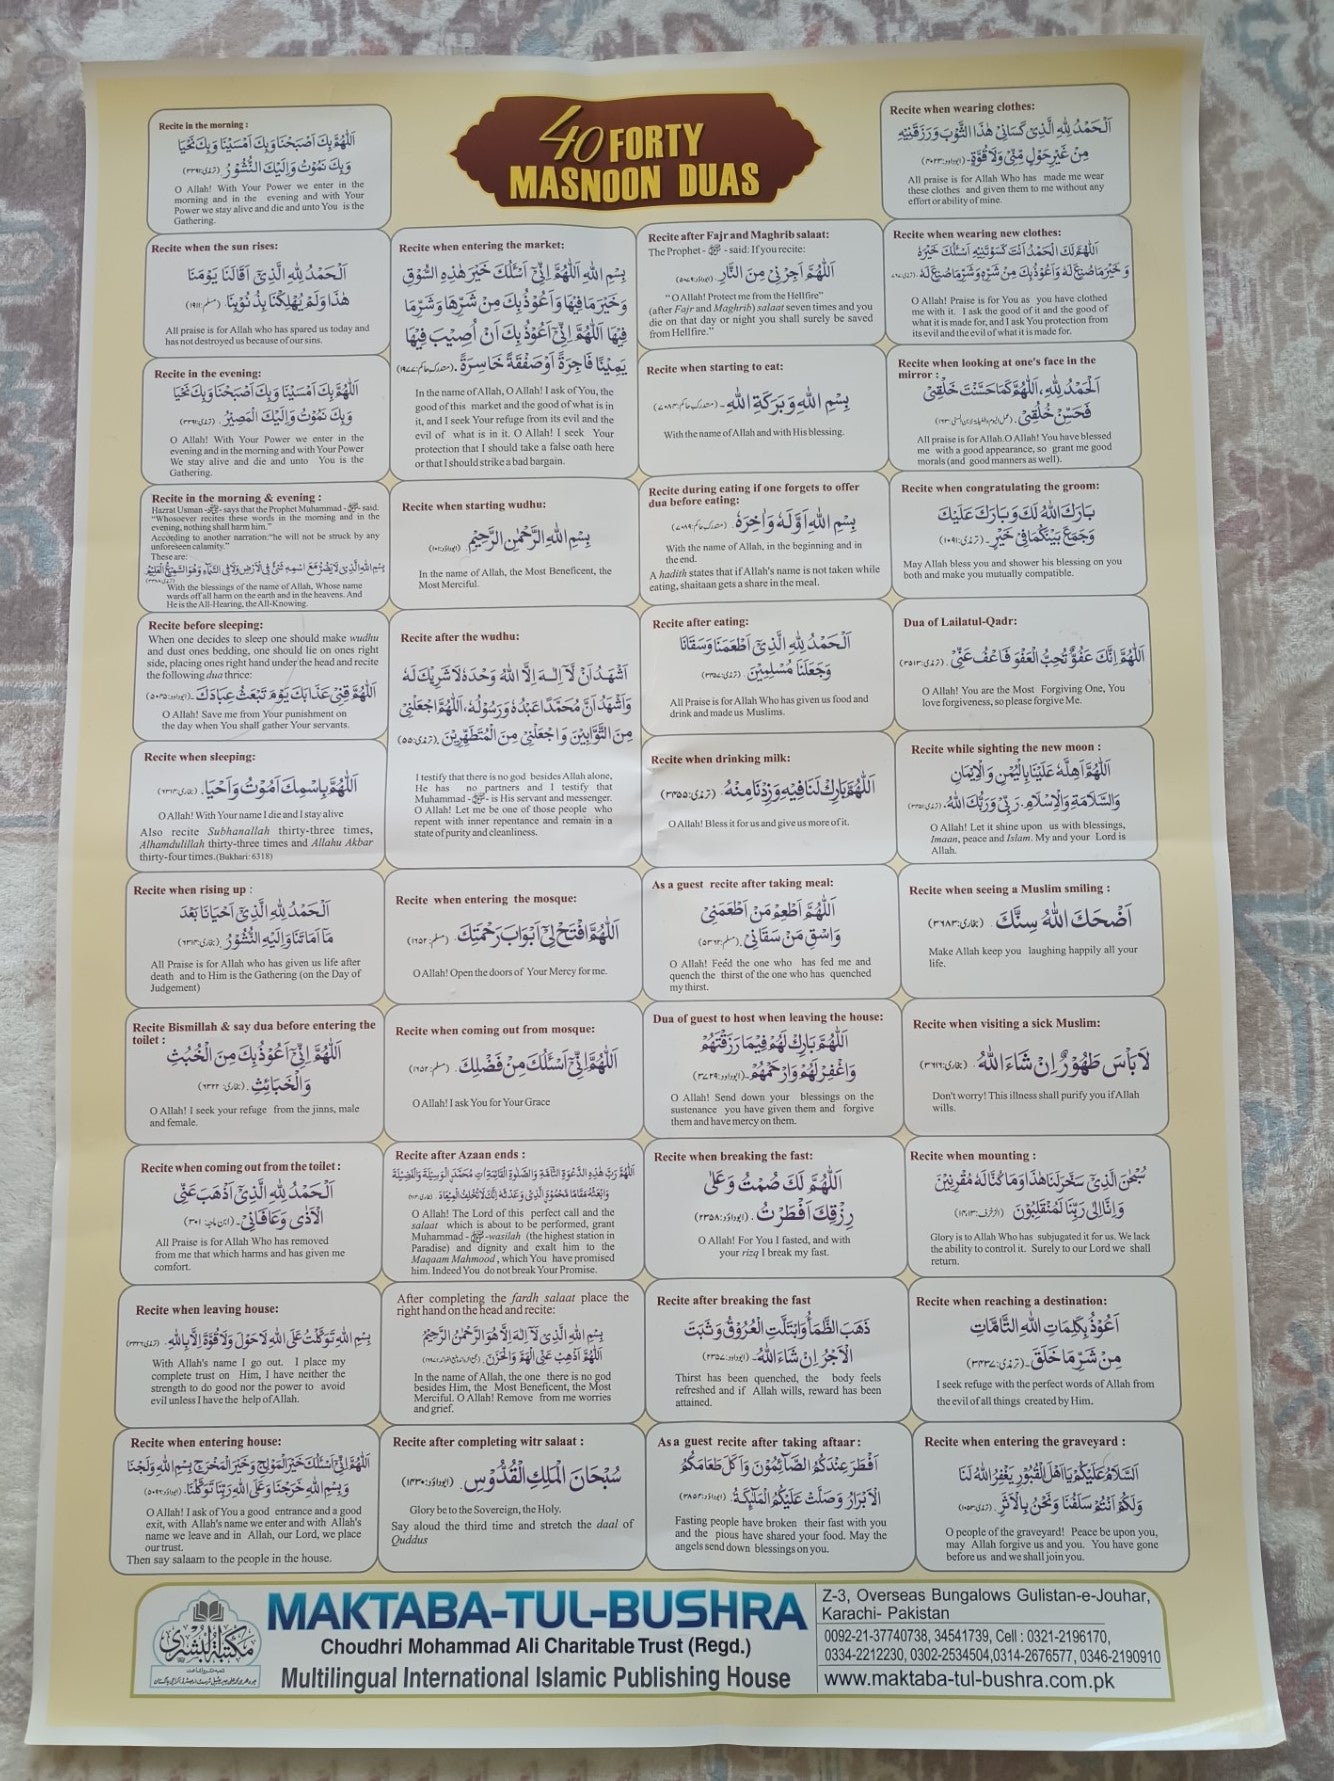 40 FORTY
MASNOON DUAS
Recite in the morning :
اَللّٰهُمَّ بِكَ اَصْبَحْنَا وَبِكَ اَمْسَيْنَا وَبِكَ نَحْيَا
وَبِكَ نَمُوْتُ وَاِلَيْكَ النُّشُوْرُ (ترمذی: ۳۳۹۱)
O Allah! With Your Power we enter in the
morning and in the evening and with Your
Power we stay alive and die and unto You is the
Gathering.
Recite when the sun rises:
اَلْحَمْدُ لِلّٰهِ الَّذِيْ اَقَالَنَا يَوْمَنَا
هٰذَا وَلَمْ يُهْلِكْنَا بِذُنُوْبِنَا (مسلم: ۱۹۱۱)
All praise is for Allah who has spared us today and
has not destroyed us because of our sins.
Recite in the evening:
اَللّٰهُمَّ بِكَ اَمْسَيْنَا وَبِكَ اَصْبَحْنَا وَبِكَ نَحْيَا
وَبِكَ نَمُوْتُ وَاِلَيْكَ الْمَصِيْرُ (ترمذی: ۳۳۹۱)
O Allah! With Your Power we enter in the
evening and in the morning and with Your Power
We stay alive and die and unto You is the
Gathering.
Recite in the morning & evening :
Hazrat Usman -ؓ- says that the Prophet Muhammad -ﷺ- said:
"Whosoever recites these words in the morning and in the
evening, nothing shall harm him."
According to another narration:"he will not be struck by any
unforeseen calamity."
These are:
بِسْمِ اللّٰهِ الَّذِيْ لَا يَضُرُّ مَعَ اسْمِهٖ شَيْءٌ فِي الْاَرْضِ وَلَا فِي السَّمَآءِ وَهُوَ السَّمِيْعُ الْعَلِيْمُ
With the blessings of the name of Allah, Whose name
wards off all harm on the earth and in the heavens. And
He is the All-Hearing, the All-Knowing.
Recite before sleeping:
When one decides to sleep one should make wudhu
and dust ones bedding, one should lie on ones right
side, placing ones right hand under the head and recite
the following dua thrice:
اَللّٰهُمَّ قِنِيْ عَذَابَكَ يَوْمَ تَبْعَثُ عِبَادَكَ (ابوداؤد: ۵۰۴۵)
O Allah! Save me from Your punishment on
the day when You shall gather Your servants.
Recite when sleeping:
اَللّٰهُمَّ بِاسْمِكَ اَمُوْتُ وَاَحْيَا. (بخاری: ۶۳۱۴)
O Allah! With Your name I die and I stay alive
Also recite Subhanallah thirty-three times,
Alhamdulillah thirty-three times and Allahu Akbar
thirty-four times.(Bukhari: 6318)
Recite when rising up :
اَلْحَمْدُ لِلّٰهِ الَّذِيْ اَحْيَانَا بَعْدَ
مَا اَمَاتَنَا وَاِلَيْهِ النُّشُوْرُ (بخاری: ۶۳۱۴)
All Praise is for Allah who has given us life after
death and to Him is the Gathering (on the Day of
Judgement)
Recite Bismillah & say dua before entering the
toilet :
اَللّٰهُمَّ اِنِّيْ اَعُوْذُ بِكَ مِنَ الْخُبُثِ
وَالْخَبَائِثِ. (بخاری: ۶۳۲۲)
O Allah! I seek your refuge from the jinns, male
and female.
Recite when coming out from the toilet :
اَلْحَمْدُ لِلّٰهِ الَّذِيْ اَذْهَبَ عَنِّي
الْاَذٰى وَعَافَانِيْ. (ابن ماجہ: ۳۰۱)
All Praise is for Allah Who has removed
from me that which harms and has given me
comfort.
Recite when leaving house:
بِسْمِ اللّٰهِ تَوَكَّلْتُ عَلَى اللّٰهِ لَا حَوْلَ وَلَا قُوَّةَ اِلَّا بِاللّٰهِ. (ترمذی: ۳۴۲۶)
With Allah's name I go out. I place my
complete trust on Him, I have neither the
strength to do good nor the power to avoid
evil unless I have the help of Allah.
Recite when entering house:
اَللّٰهُمَّ اِنِّيْ اَسْئَلُكَ خَيْرَ الْمَوْلِجِ وَخَيْرَ الْمَخْرَجِ بِسْمِ اللّٰهِ وَلَجْنَا
وَبِسْمِ اللّٰهِ خَرَجْنَا وَعَلَى اللّٰهِ رَبِّنَا تَوَكَّلْنَا. (ابوداؤد: ۵۰۹۶)
O Allah! I ask of You a good entrance and a good
exit, with Allah's name we enter and with Allah's
name we leave and in Allah, our Lord, we place
our trust.
Then say salaam to the people in the house.
Recite when entering the market:
بِسْمِ اللّٰهِ اَللّٰهُمَّ اِنِّيْ اَسْئَلُكَ خَيْرَ هٰذِهِ السُّوْقِ
وَخَيْرَ مَا فِيْهَا وَاَعُوْذُ بِكَ مِنْ شَرِّهَا وَشَرِّ مَا
فِيْهَا اَللّٰهُمَّ اِنِّيْ اَعُوْذُ بِكَ اَنْ اُصِيْبَ فِيْهَا
يَمِيْنًا فَاجِرَةً اَوْ صَفْقَةً خَاسِرَةً. (مستدرک حاکم: ۱۹۷۷)
In the name of Allah, O Allah! I ask of You, the
good of this market and the good of what is in
it, and I seek Your refuge from its evil and the
evil of what is in it. O Allah! I seek Your
protection that I should take a false oath here
or that I should strike a bad bargain.
Recite when starting wudhu:
بِسْمِ اللّٰهِ الرَّحْمٰنِ الرَّحِيْمِ (ابوداؤد: ۱۰۲)
In the name of Allah, the Most Beneficent, the
Most Merciful.
Recite after the wudhu:
اَشْهَدُ اَنْ لَّا اِلٰهَ اِلَّا اللّٰهُ وَحْدَهٗ لَا شَرِيْكَ لَهٗ
وَاَشْهَدُ اَنَّ مُحَمَّدًا عَبْدُهٗ وَرَسُوْلُهٗ، اَللّٰهُمَّ اجْعَلْنِيْ
مِنَ التَّوَّابِيْنَ وَاجْعَلْنِيْ مِنَ الْمُتَطَهِّرِيْنَ. (ترمذی: ۵۵)
I testify that there is no god besides Allah alone,
He has no partners and I testify that
Muhammad -ﷺ- is His servant and messenger.
O Allah! Let me be one of those people who
repent with inner repentance and remain in a
state of purity and cleanliness.
Recite when entering the mosque:
اَللّٰهُمَّ افْتَحْ لِيْ اَبْوَابَ رَحْمَتِكَ. (مسلم: ۱۶۵۲)
O Allah! Open the doors of Your Mercy for me.
Recite when coming out from mosque:
اَللّٰهُمَّ اِنِّيْ اَسْئَلُكَ مِنْ فَضْلِكَ. (مسلم: ۱۶۵۲)
O Allah! I ask You for Your Grace
Recite after Azaan ends :
اَللّٰهُمَّ رَبَّ هٰذِهِ الدَّعْوَةِ التَّامَّةِ وَالصَّلٰوةِ الْقَائِمَةِ اٰتِ مُحَمَّدَ الْوَسِيْلَةَ وَالْفَضِيْلَةَ
وَابْعَثْهُ مَقَامًا مَّحْمُوْدَ الَّذِيْ وَعَدْتَّهٗ اِنَّكَ لَا تُخْلِفُ الْمِيْعَادَ
O Allah! The Lord of this perfect call and the
salaat which is about to be performed, grant
Muhammad -ﷺ- wasilah (the highest station in
Paradise) and dignity and exalt him to the
Maqaam Mahmood, which You have promised
him. Indeed You do not break Your Promise.
After completing the fardh salaat place the
right hand on the head and recite:
بِسْمِ اللّٰهِ الَّذِيْ لَا اِلٰهَ اِلَّا هُوَ الرَّحْمٰنُ الرَّحِيْمُ
اَللّٰهُمَّ اَذْهِبْ عَنِّي الْهَمَّ وَالْحُزْنَ.
In the name of Allah, the one there is no god
besides Him, the Most Beneficent, the Most
Merciful. O Allah! Remove from me worries
and grief.
Recite after completing witr salaat :
سُبْحَانَ الْمَلِكِ الْقُدُّوْسِ. (ابوداؤد: ۱۴۳۰)
Glory be to the Sovereign, the Holy.
Say aloud the third time and stretch the daal of
Quddus
Recite after Fajr and Maghrib salaat:
The Prophet - ﷺ - said: If you recite:
اَللّٰهُمَّ اَجِرْنِيْ مِنَ النَّارِ. (ابوداؤد: ۵۰۷۹)
"O Allah! Protect me from the Hellfire"
(after Fajr and Maghrib) salaat seven times and you
die on that day or night you shall surely be saved
from Hellfire."
Recite when starting to eat:
بِسْمِ اللّٰهِ وَبَرَكَةِ اللّٰهِ. (مستدرک حاکم: ۷۰۸۴)
With the name of Allah and with His blessing.
Recite during eating if one forgets to offer
dua before eating:
بِسْمِ اللّٰهِ اَوَّلَهٗ وَاٰخِرَهٗ. (مستدرک حاکم: ۷۰۸۹)
With the name of Allah, in the beginning and in
the end.
A hadith states that if Allah's name is not taken while
eating, shaitaan gets a share in the meal.
Recite after eating:
اَلْحَمْدُ لِلّٰهِ الَّذِيْ اَطْعَمَنَا وَسَقَانَا
وَجَعَلَنَا مُسْلِمِيْنَ (ترمذی: ۳۴۵۷)
All Praise is for Allah Who has given us food and
drink and made us Muslims.
Recite when drinking milk:
اَللّٰهُمَّ بَارِكْ لَنَا فِيْهِ وَزِدْنَا مِنْهُ (ترمذی: ۳۴۵۵)
O Allah! Bless it for us and give us more of it.
As a guest recite after taking meal:
اَللّٰهُمَّ اَطْعِمْ مَنْ اَطْعَمَنِيْ
وَاسْقِ مَنْ سَقَانِيْ. (مسلم: ۵۳۶۲)
O Allah! Feed the one who has fed me and
quench the thirst of the one who has quenched
my thirst.
Dua of guest to host when leaving the house:
اَللّٰهُمَّ بَارِكْ لَهُمْ فِيْمَا رَزَقْتَهُمْ
وَاغْفِرْ لَهُمْ وَارْحَمْهُمْ. (ابوداؤد: ۳۷۲۹)
O Allah! Send down your blessings on the
sustenance you have given them and forgive
them and have mercy on them.
Recite when breaking the fast:
اَللّٰهُمَّ لَكَ صُمْتُ وَعَلٰى
رِزْقِكَ اَفْطَرْتُ. (ابوداؤد: ۲۳۵۸)
O Allah! For You I fasted, and with
your rizq I break my fast.
Recite after breaking the fast
ذَهَبَ الظَّمَأُ وَابْتَلَّتِ الْعُرُوْقُ وَثَبَتَ
الْاَجْرُ اِنْ شَاءَ اللّٰهُ. (ابوداؤد: ۲۳۵۷)
Thirst has been quenched, the body feels
refreshed and if Allah wills, reward has been
attained.
As a guest recite after taking aftaar :
اَفْطَرَ عِنْدَكُمُ الصَّآئِمُوْنَ وَاَكَلَ طَعَامَكُمُ
الْاَبْرَارُ وَصَلَّتْ عَلَيْكُمُ الْمَلٰٓئِكَةُ. (ابوداؤد: ۳۸۵۴)
Fasting people have broken their fast with you
and the pious have shared your food. May the
angels send down blessings on you.
Recite when wearing clothes:
اَلْحَمْدُ لِلّٰهِ الَّذِيْ كَسَانِيْ هٰذَا الثَّوْبَ وَرَزَقَنِيْهِ
مِنْ غَيْرِ حَوْلٍ مِّنِّيْ وَلَا قُوَّةٍ. (ابوداؤد: ۴۰۲۳)
All praise is for Allah Who has made me wear
these clothes and given them to me without any
effort or ability of mine.
Recite when wearing new clothes:
اَللّٰهُمَّ لَكَ الْحَمْدُ اَنْتَ كَسَوْتَنِيْهِ اَسْئَلُكَ خَيْرَهٗ
وَخَيْرَ مَا صُنِعَ لَهٗ وَاَعُوْذُ بِكَ مِنْ شَرِّهٖ وَشَرِّ مَا صُنِعَ لَهٗ.
O Allah! Praise is for You as you have clothed
me with it. I ask of the good of it and the good of
what it is made for, and I ask You protection from
its evil and the evil of what it is made for.
Recite when looking at one's face in the
mirror :
اَلْحَمْدُ لِلّٰهِ، اَللّٰهُمَّ كَمَا حَسَّنْتَ خَلْقِيْ
فَحَسِّنْ خُلُقِيْ.
All praise is for Allah. O Allah! You have blessed
me with a good appearance, so grant me good
morals (and good manners as well).
Recite when congratulating the groom:
بَارَكَ اللّٰهُ لَكَ وَبَارَكَ عَلَيْكَ
وَجَمَعَ بَيْنَكُمَا فِيْ خَيْرٍ. (ترمذی: ۱۰۹۱)
May Allah bless you and shower his blessing on you
both and make you mutually compatible.
Dua of Lailatul-Qadr:
اَللّٰهُمَّ اِنَّكَ عَفُوٌّ تُحِبُّ الْعَفْوَ فَاعْفُ عَنِّيْ. (ترمذی: ۳۵۱۳)
O Allah! You are the Most Forgiving One, You
love forgiveness, so please forgive Me.
Recite while sighting the new moon :
اَللّٰهُمَّ اَهِلَّهٗ عَلَيْنَا بِالْيُمْنِ وَالْاِيْمَانِ
وَالسَّلَامَةِ وَالْاِسْلَامِ، رَبِّيْ وَرَبُّكَ اللّٰهُ. (ترمذی: ۳۴۵۱)
O Allah! Let it shine upon us with blessings,
Imaan, peace and Islam. My and your Lord is
Allah.
Recite when seeing a Muslim smiling :
اَضْحَكَ اللّٰهُ سِنَّكَ. (بخاری: ۳۶۸۳)
Make Allah keep you laughing happily all your
life.
Recite when visiting a sick Muslim:
لَا بَأْسَ طَهُوْرٌ اِنْ شَاءَ اللّٰهُ. (بخاری: ۳۶۱۶)
Don't worry! This illness shall purify you if Allah
wills.
Recite when mounting :
سُبْحٰنَ الَّذِيْ سَخَّرَ لَنَا هٰذَا وَمَا كُنَّا لَهٗ مُقْرِنِيْنَ
وَاِنَّا اِلٰى رَبِّنَا لَمُنْقَلِبُوْنَ (الزخرف: ۱۳،۱۴)
Glory is to Allah Who has subjugated it for us. We lack
the ability to control it. Surely to our Lord we shall
return.
Recite when reaching a destination:
اَعُوْذُ بِكَلِمَاتِ اللّٰهِ التَّامَّاتِ
مِنْ شَرِّ مَا خَلَقَ. (ترمذی: ۳۴۳۷)
I seek refuge with the perfect words of Allah from
the evil of all things created by Him.
Recite when entering the graveyard :
اَلسَّلَامُ عَلَيْكُمْ يَا اَهْلَ الْقُبُوْرِ يَغْفِرُ اللّٰهُ لَنَا
وَلَكُمْ اَنْتُمْ سَلَفُنَا وَنَحْنُ بِالْاَثَرِ. (ترمذی: ۱۰۵۳)
O people of the graveyard! Peace be upon you,
may Allah forgive us and you. You have gone
before us and we shall join you.
مكتبة البشرى
MAKTABA-TUL-BUSHRA
Choudhri Mohammad Ali Charitable Trust (Regd.)
Multilingual International Islamic Publishing House
Z-3, Overseas Bungalows Gulistan-e-Jouhar,
Karachi- Pakistan
0092-21-37740738, 34541739, Cell : 0321-2196170,
0334-2212230, 0302-2534504,0314-2676577, 0346-2190910
www.maktaba-tul-bushra.com.pk